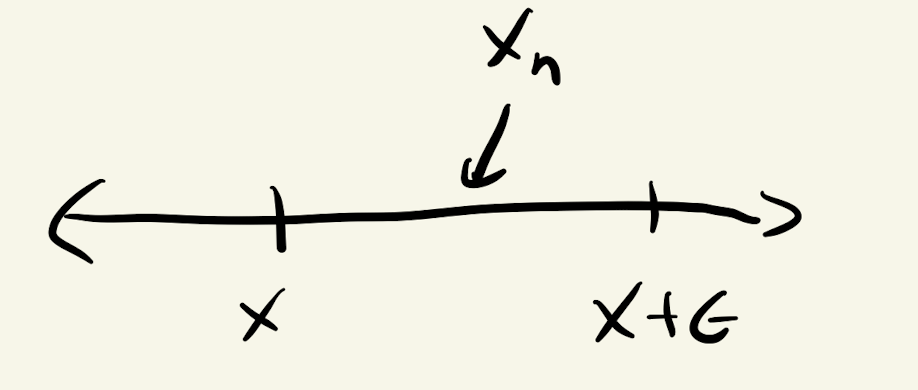 Xn
X
X+ϵ